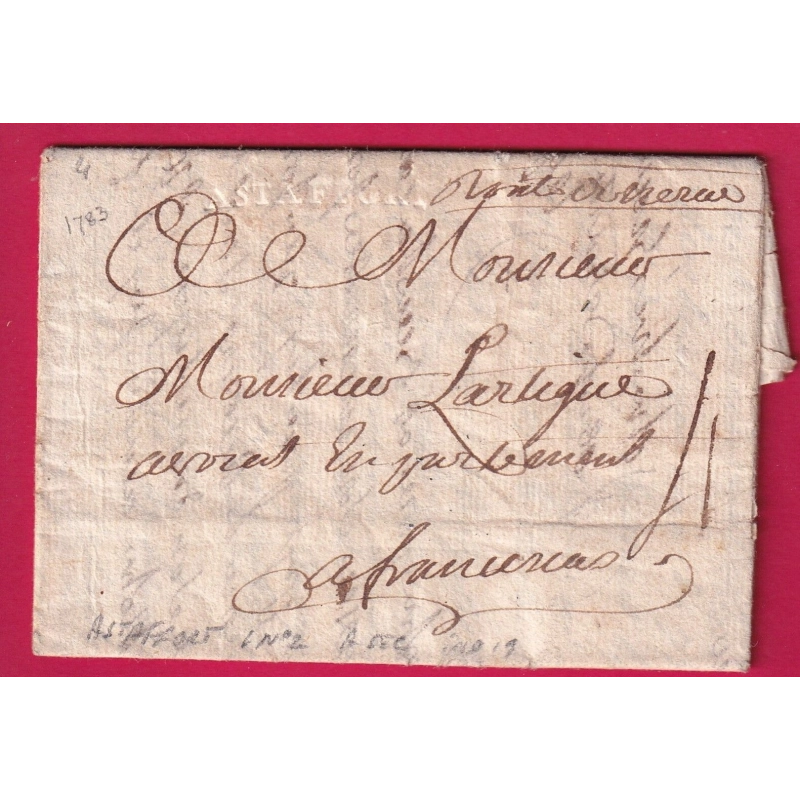 4
1783
ASTAFFORT
Route de nerac
Monsieur
Monsieur Lartigue
avocat En parlement
a francescas
ASTAFFORT L N°2 A SEC